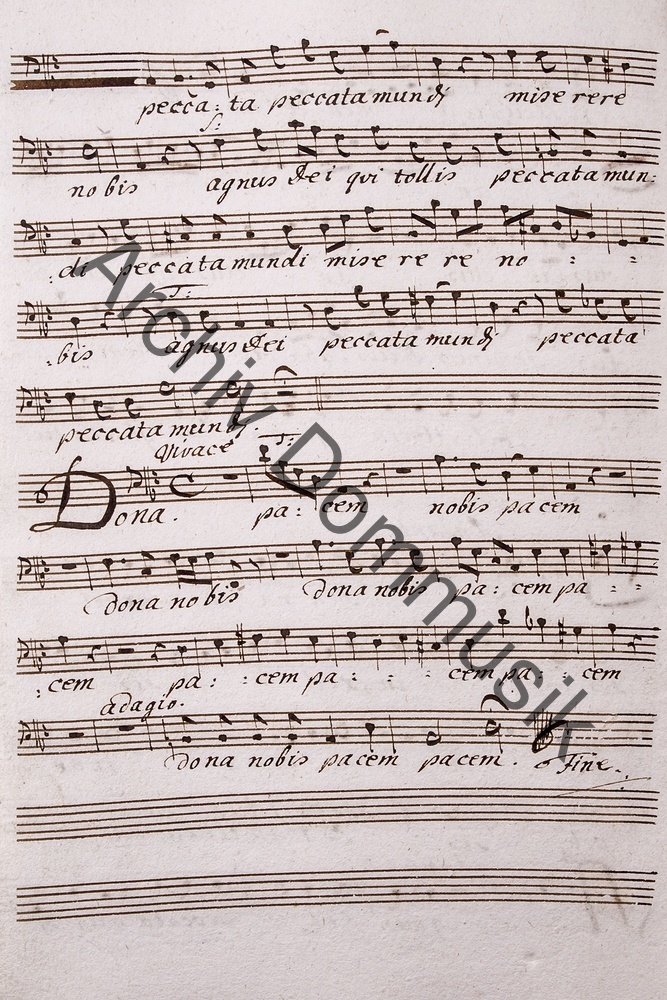 pecca: ta peccata mundj mise rere
S:
no bis agnus Dei qvi tollis peccata mun:
: di peccata mundi mise re re no : : :
T:
:bis agnus Dei peccata mundj peccata
peccata mundj.
Vivace
T:
Dona. pa: cem nobis pacem
dona nobis dona nobis pa: cem pa : :
: cem pa : : cem pa : : : cem pa : : cem
adagio.
dona nobis pacem pacem. Fine.
Archiv Dommusik